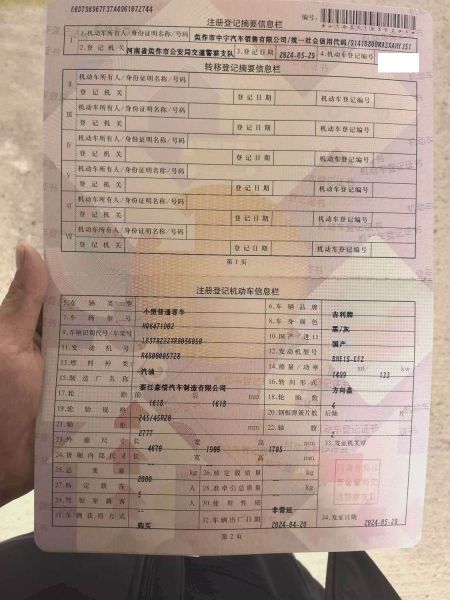 注册登记摘要信息栏
编号:
1.机动车所有人/身份证明名称/号码 焦作市中宁汽车销售有限公司/统一社会信用代码/
2.登记机关 河南省焦作市公安局交通警察支队 3.登记日期 2024-05-29 4.机动车登记编号
转移登记摘要信息栏
II 机动车所有人/身份证明名称/号码
登记机关 登记日期 机动车登记编号
III 机动车所有人/身份证明名称/号码
登记机关 登记日期 机动车登记编号
IV 机动车所有人/身份证明名称/号码
登记机关 登记日期 机动车登记编号
V 机动车所有人/身份证明名称/号码
登记机关 登记日期 机动车登记编号
VI 机动车所有人/身份证明名称/号码
登记机关 登记日期 机动车登记编号
VII 机动车所有人/身份证明名称/号码
登记机关 登记日期 机动车登记编号
第1页
注册登记机动车信息栏
5.车辆类型 小型普通客车 6.车辆品牌 吉利牌
7.车辆型号 8.车身颜色 黑/灰
9.车辆识别代号/车架号 10.国产/进口 国产
11.发动机号 12.发动机型号
13.燃料种类 汽油 14.排量/功率 1499 ml 133 kw
15.制造厂名称 浙江豪情汽车制造有限公司 16.转向形式 方向盘
17.轮距 前 1618 后 1618 18.轮胎数 4
19.轮胎规格 245/45R20 20.钢板弹簧片数 后轴 片
21.轴距 2777 22.轴数 2
23.外廓尺寸 长 4670 宽 1900 高 1705 33.发证机关章
24.货厢内部尺寸 长 宽 高
25.总质量 2000 26.核定载质量
27.核定载客 5 人 28.准牵引总质量
29.驾驶室载客 人 30.使用性质 非营运
31.车辆获得方式 购买 32.车辆出厂日期 2024-04-20 34.发证日期 2024-05-29
第2页